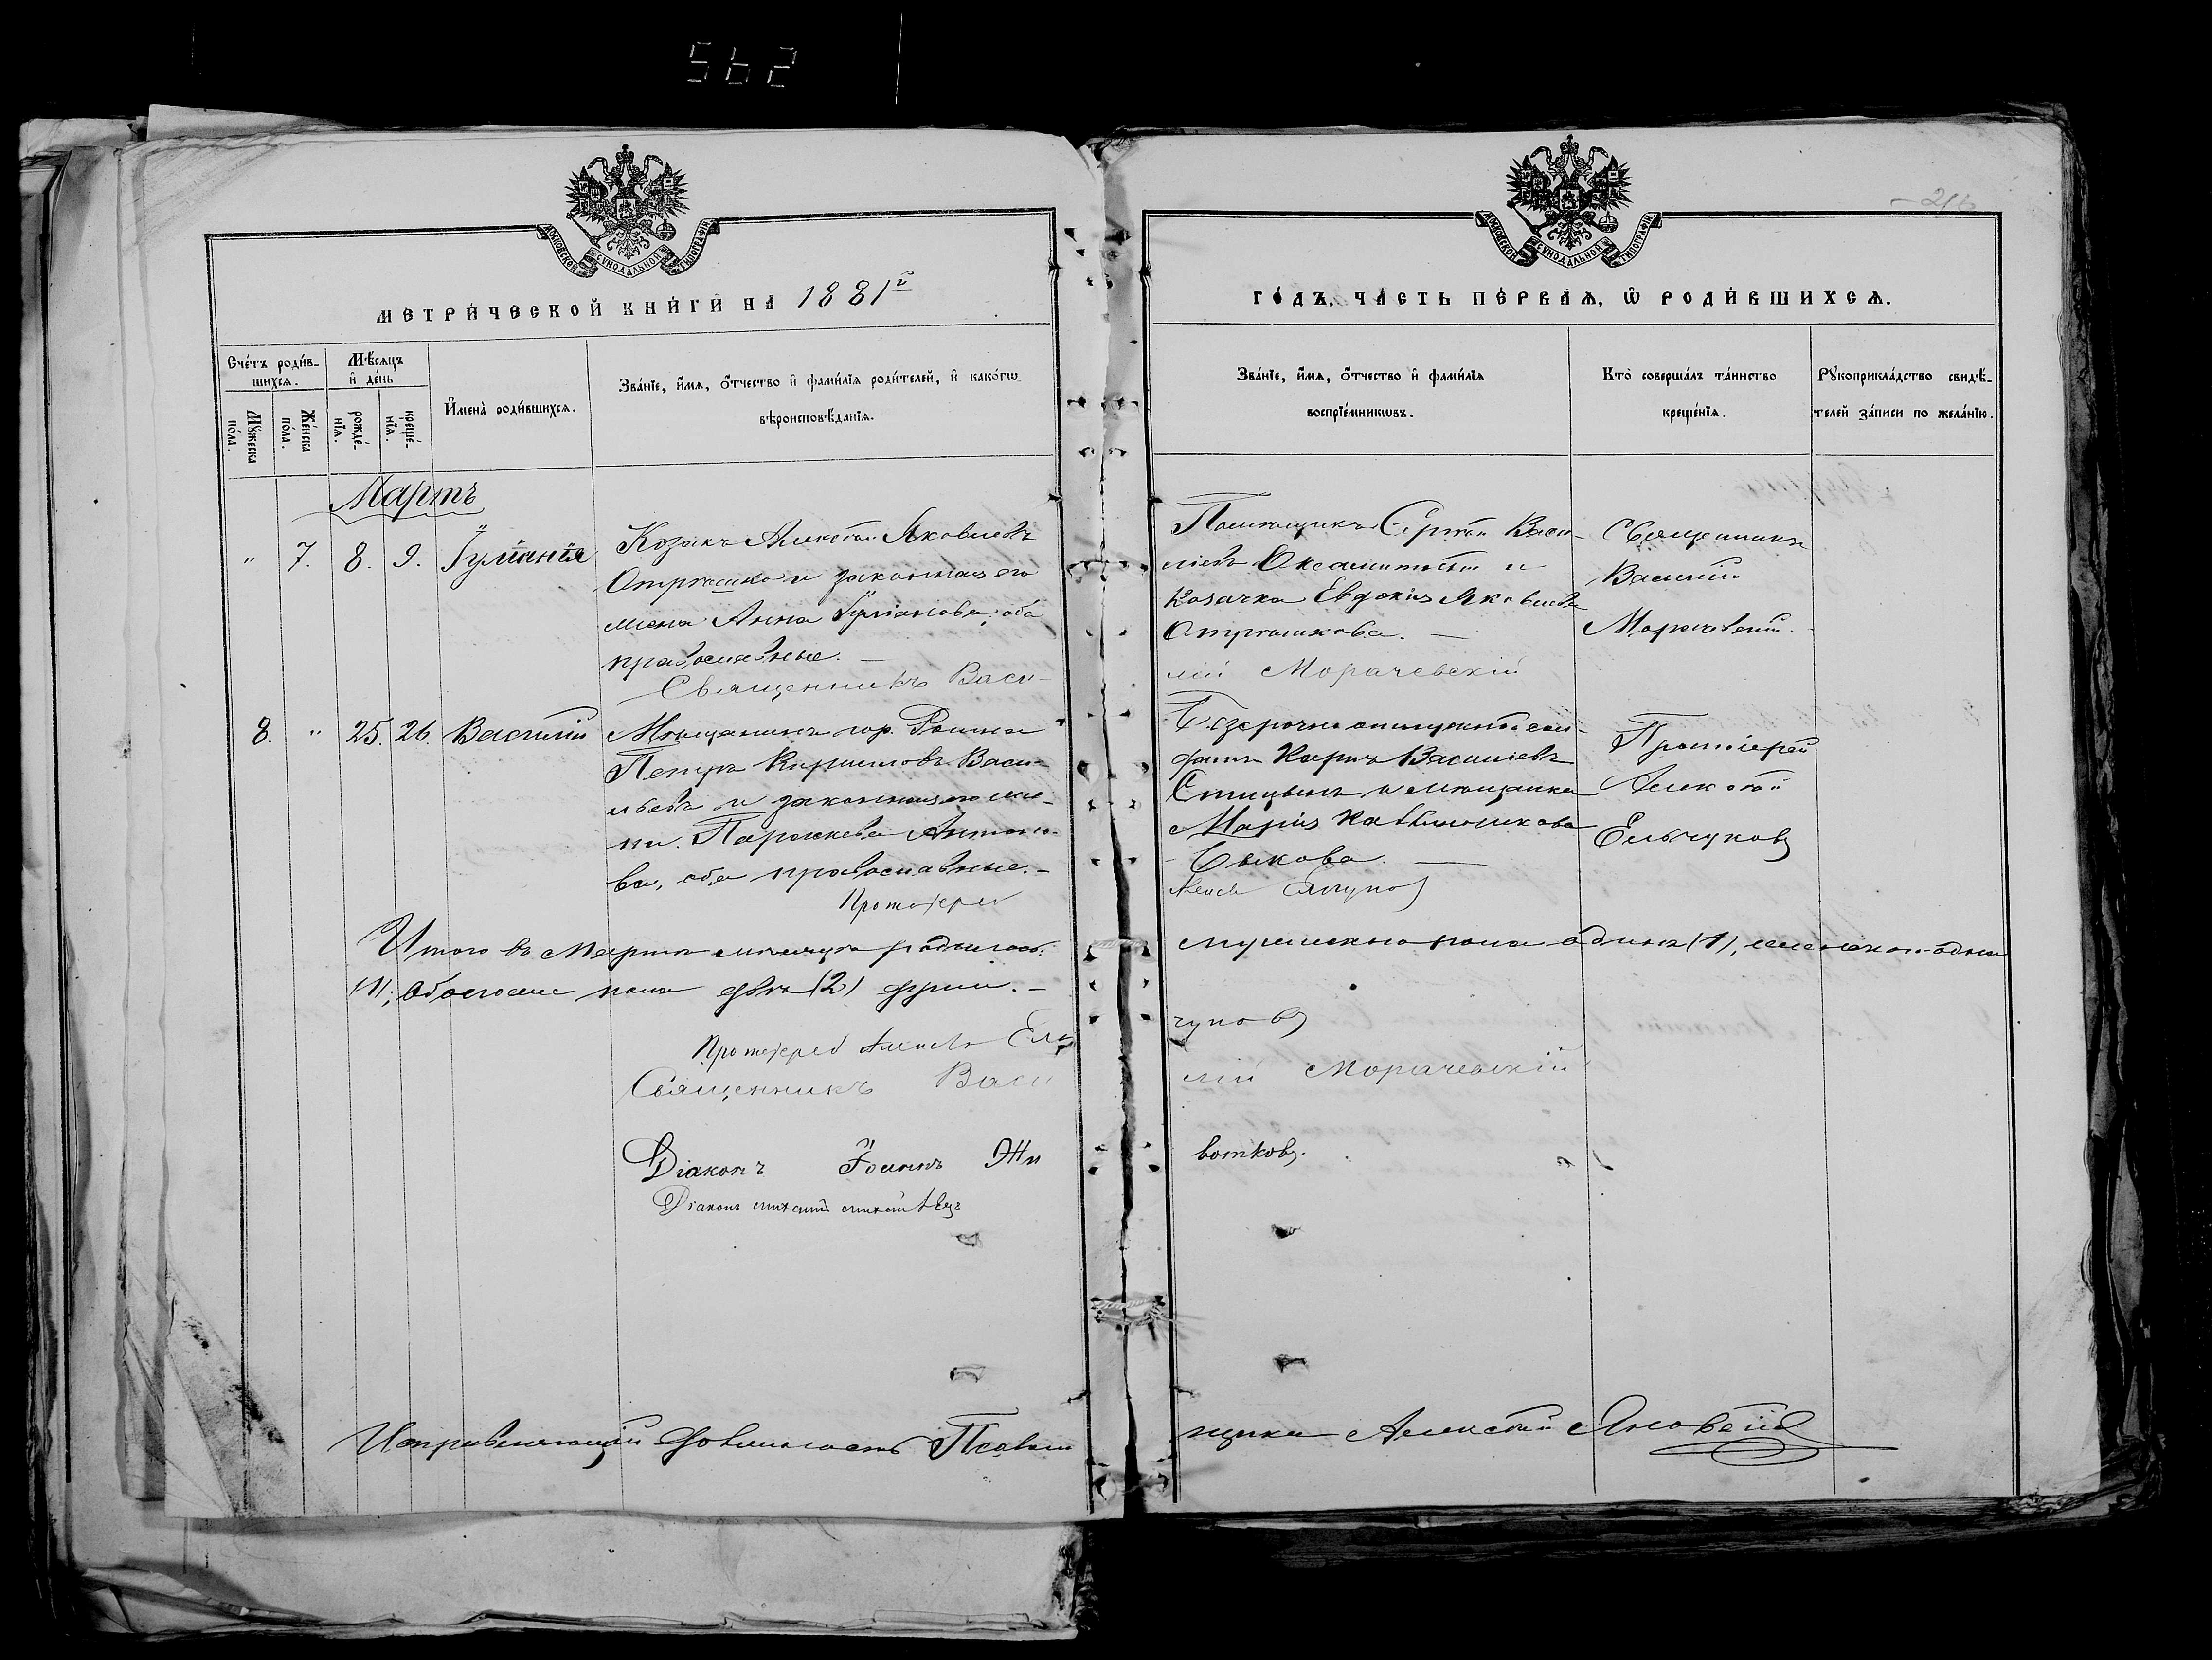 562
МОСКОВСКОЙ СѴНОДАЛЬНОЙ ТИПОГРАФІИ
МЕТРИ́ЧЕСКОЙ КНИ́ГИ НА 1881 г
Сче́тъ роди́в-
шихсѧ.
Мѣ́сѧцъ
и де́нь
Мꙋ́жеска
по́ла.
Же́нска
по́ла.
рожде́-
нїѧ.
креще́-
нїѧ.
Имена̀ роди́вшихсѧ.
Зва́нїе, и́мѧ, ѻ́тчество и фами́лїѧ роди́телей, и како́гѡ
вѣроисповѣ́данїѧ.
Мартъ
" 7. 8. 9. Іуліанія
Козакъ Алексѣй Яковлевъ
и законная его
жена Анна Іуліанова, оба
православные. —
Священникъ Васи-
8. " 25. 26. Василій
Мѣщанинъ гор. Ромна
Петръ Кирилловъ Васи-
льевъ и законная его же-
на Параскева Антоно-
ва, оба православные. —
Протоіерей
Итого въ Мартѣ мѣсяцѣ родилось:
(1); обоего пола два (2) души. —
Протоіерей Алексѣй Ель
Священникъ Васи
Діаконъ Іоаннъ Жи
Діаконъ
Исправляющій должность Псалом
МОСКОВСКОЙ СѴНОДАЛЬНОЙ ТИПОГРАФІИ
ГО́ДЪ, ЧА́СТЬ ПЕ́РВАѦ, Ѡ РОДИ́ВШИХСѦ.
Зва́нїе, и́мѧ, ѻ́тчество и фами́лїѧ
воспрїе́мникѡвъ.
Кто̀ соверша́лъ та́инство
креще́нїѧ.
Рꙋкоприкла́дство свидѣ́-
телей за́писи по жела́нїю.
Помѣщикъ Сергѣй Васи-
льевъ и
Козачка Евдокія Яковлева
лій Морачевскій
Священникъ
Василій
Морачевскій.
Безсрочно отпускной сол-
датъ Карпъ Васильевъ
и мѣщанка
Марія
Быкова. —
Протоіерей
Алексѣй
Ельчуковъ
мужеска пола одинъ (1), женска одна
чуковъ
лій Морачевскій
вотковъ.
щика Алексѣй